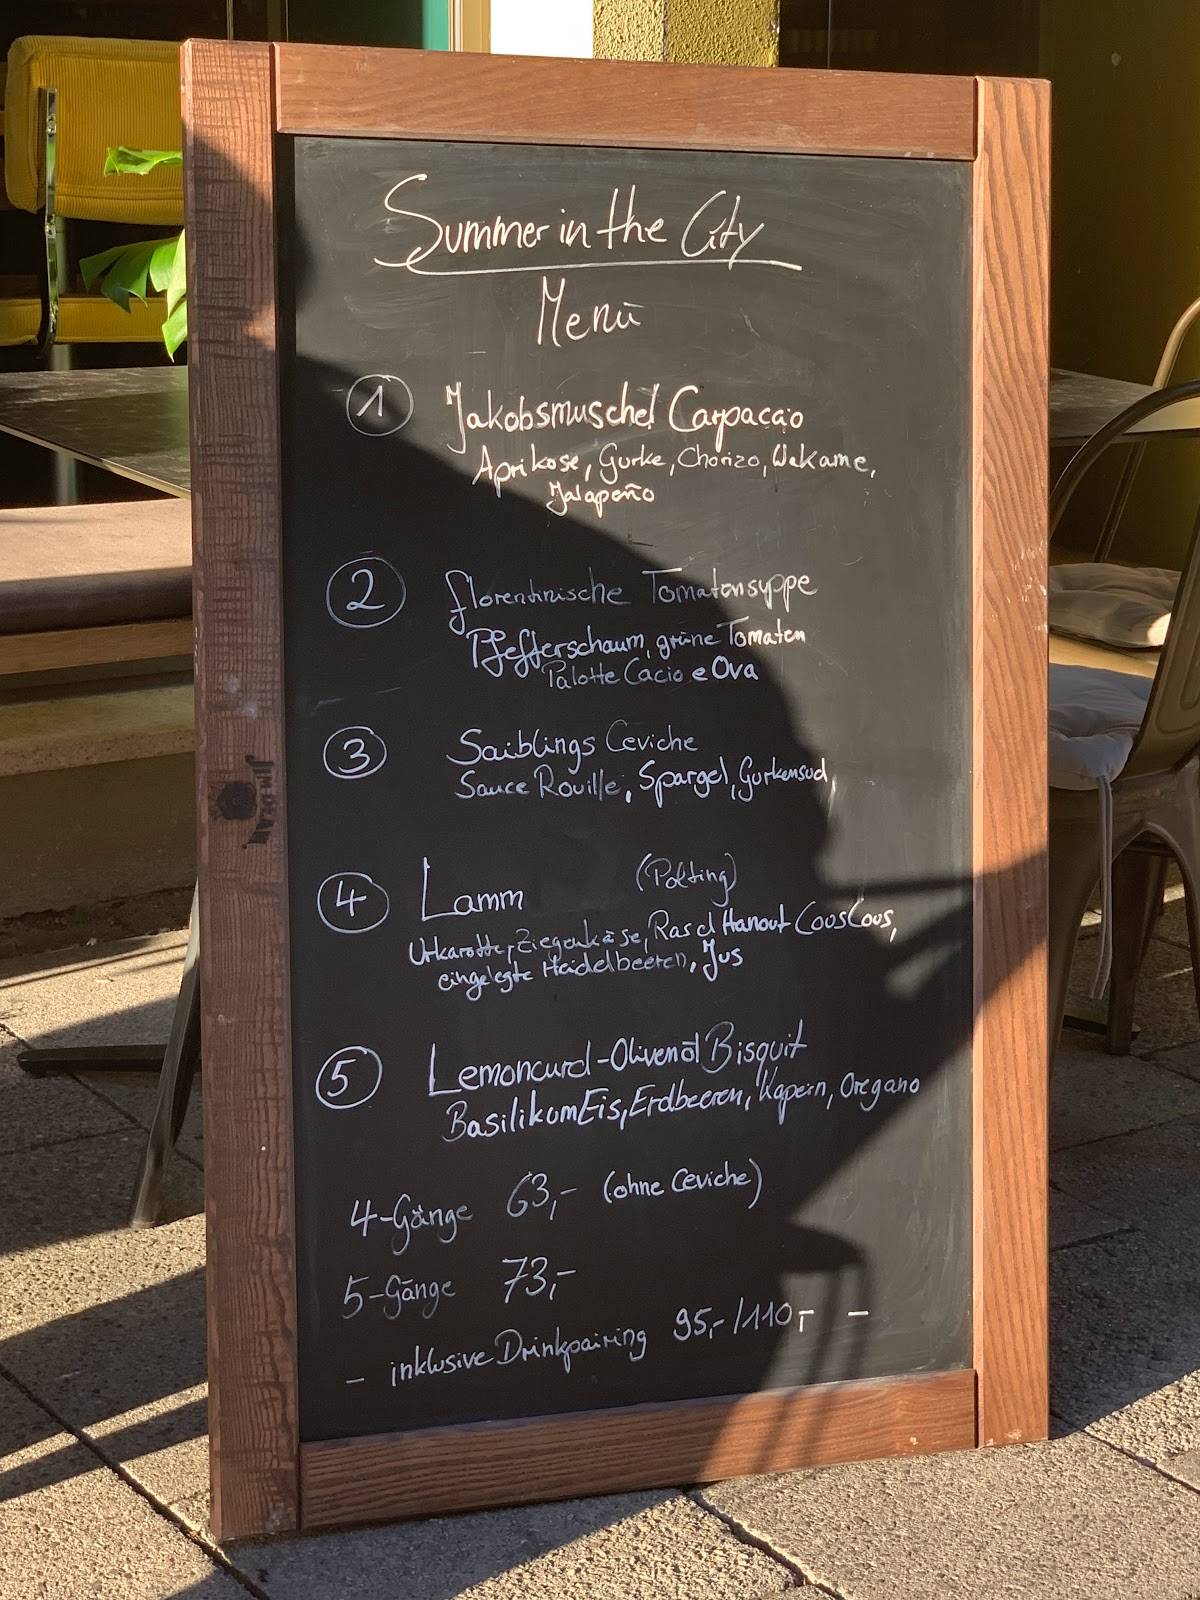 Summer in the City
Menü
1 Jakobsmuschel Carpaccio
Aprikose, Gurke, Chorizo, Wakame,
Jalapeño
2 Florentinische Tomatensuppe
Pfefferschaum, grüne Tomaten
Palotte Cacio e Ova
3 Saiblings Ceviche
Sauce Rouille, Spargel, Gurkensud
4 Lamm (Polting)
Urkarotte, Ziegenkäse, Ras el Hanout CousCous,
eingelegte Heidelbeeren, Jus
5 Lemoncurd-Olivenöl Bisquit
Basilikum Eis, Erdbeeren, Kapern, Oregano
4-Gänge 63,- (ohne Ceviche)
5-Gänge 73,-
- inklusive Drinkpairing 95,-/110,- -
JIM BEAM